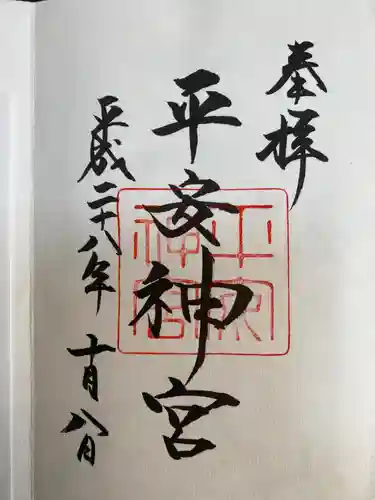 奉拝
平安神宮
平安神宮
平成二十八年十月八日